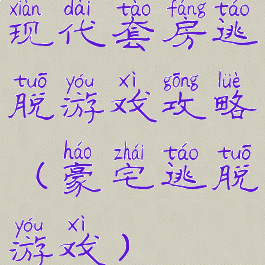 xiàn dài tào fáng táo
现代套房逃
tuō yóu xì gōng lüè
脱游戏攻略
háo zhái táo tuō
（豪宅逃脱
yóu xì
游戏）